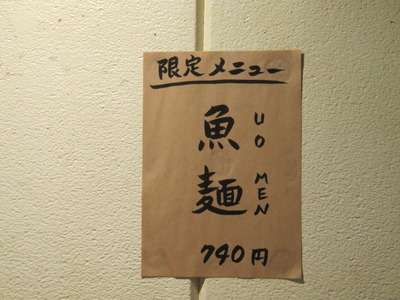 限定メニュー
魚麺
UO MEN
740円